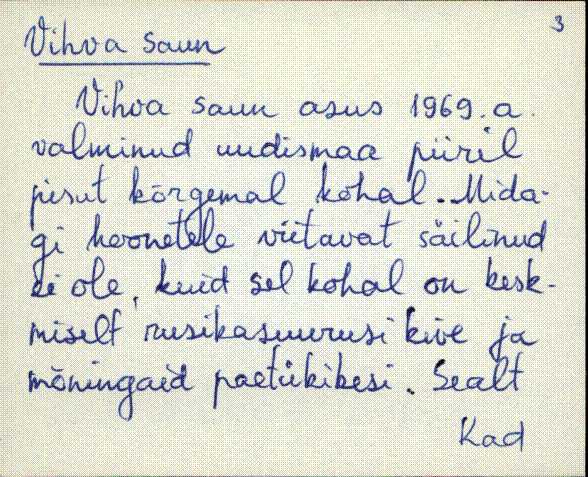 3
Vihva saun
Vihva saun asus 1969. a.
valminud uudismaa piiril
pisut kõrgemal kohal. Mida-
gi hoonetele viitavat säilinud
ei ole, kuid sel kohal on kesk-
miselt rusikasuurusi kive ja
mõningaid paetükikesi. Sealt
Kad